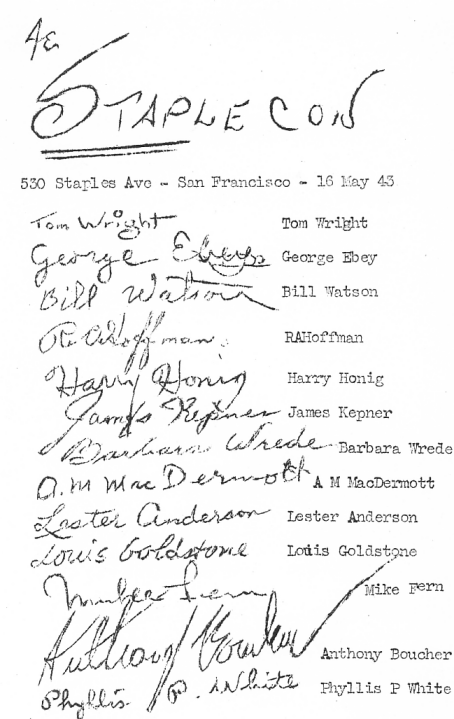 4e
STAPLECON
530 Staples Ave - San Francisco - 16 May 43
Tom Wright Tom Wright
George Ebey George Ebey
Bill Watson Bill Watson
R.A.Hoffman. RAHoffman
Harry Honig Harry Honig
James Kepner James Kepner
Barbara Wrede Barbara Wrede
A.M MacDermott A M MacDermott
Lester Anderson Lester Anderson
Louis Goldstone Louis Goldstone
Fern Mike Fern
Anthony Boucher Anthony Boucher
Phyllis P. White Phyllis P White